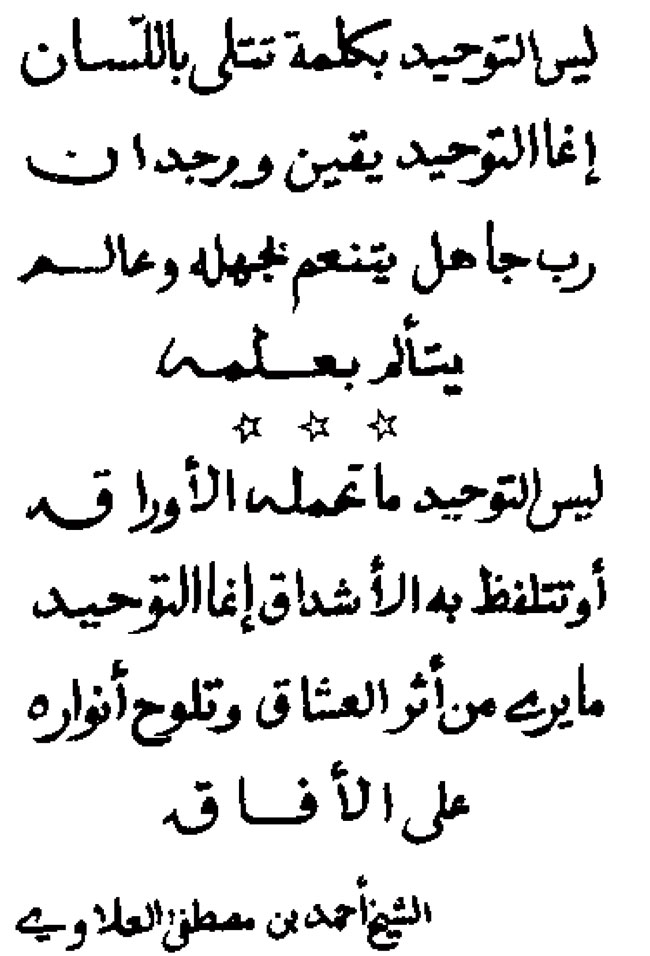 ليس التوحيد بكلمة تتلى باللّسان
إنما التوحيد يقين ووجدان
رب جاهل يتنعم بجهله وعالم
يتألم بعلمه
☆ ☆ ☆
ليس التوحيد ما تحمله الأوراق
أو تتلفظ به الأشداق إنما التوحيد
ما يرى من أثر العشاق وتلوح أنواره
على الأفاق
الشيخ أحمد بن مصطفى العلاوي